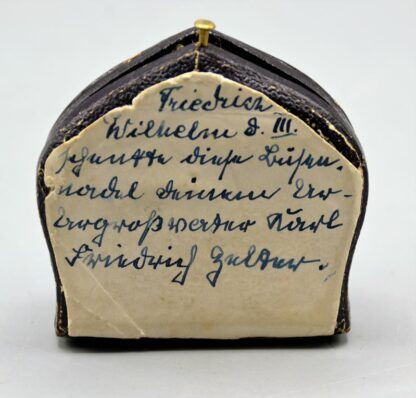 Friedrich
Wilhelm d. III.
schenkte diese Busen-
nadel deinem Ur-
Urgroßvater Karl
Friedrich Zelter.